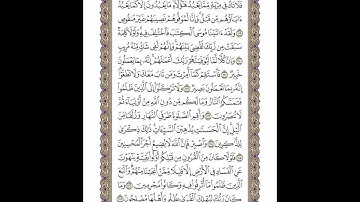 فَلَا تَكُ فِي مِرْيَةٍ مِّمَّا يَعْبُدُ هَٰٓؤُلَآءِ مَا يَعْبُدُونَ إِلَّا كَمَا يَعْبُدُ
ءَابَآؤُهُم مِّن قَبْلُ وَإِنَّا لَمُوَفُّوهُمْ نَصِيبَهُمْ غَيْرَ مَنقُوصٍ
١٠٩ وَلَقَدْ ءَاتَيْنَا مُوسَى ٱلْكِتَٰبَ فَٱخْتُلِفَ فِيهِ وَلَوْلَا كَلِمَةٌ
سَبَقَتْ مِن رَّبِّكَ لَقُضِيَ بَيْنَهُمْ وَإِنَّهُمْ لَفِي شَكٍّ مِّنْهُ مُرِيبٍ
١١٠ وَإِنَّ كُلًّا لَّمَّا لَيُوَفِّيَنَّهُمْ رَبُّكَ أَعْمَٰلَهُمْ إِنَّهُۥ بِمَا يَعْمَلُونَ
خَبِيرٌ ١١١ فَٱسْتَقِمْ كَمَآ أُمِرْتَ وَمَن تَابَ مَعَكَ وَلَا تَطْغَوْا۟
إِنَّهُۥ بِمَا تَعْمَلُونَ بَصِيرٌ ١١٢ وَلَا تَرْكَنُوٓا۟ إِلَى ٱلَّذِينَ ظَلَمُوا۟
فَتَمَسَّكُمُ ٱلنَّارُ وَمَا لَكُم مِّن دُونِ ٱللَّهِ مِنْ أَوْلِيَآءَ ثُمَّ
لَا تُنصَرُونَ ١١٣ وَأَقِمِ ٱلصَّلَوٰةَ طَرَفَيِ ٱلنَّهَارِ وَزُلَفًا مِّنَ
ٱلَّيْلِ إِنَّ ٱلْحَسَنَٰتِ يُذْهِبْنَ ٱلسَّيِّـَٔاتِ ذَٰلِكَ ذِكْرَىٰ
لِلذَّٰكِرِينَ ١١٤ وَٱصْبِرْ فَإِنَّ ٱللَّهَ لَا يُضِيعُ أَجْرَ ٱلْمُحْسِنِينَ
١١٥ فَلَوْلَا كَانَ مِنَ ٱلْقُرُونِ مِن قَبْلِكُمْ أُو۟لُوا۟ بَقِيَّةٍ يَنْهَوْنَ
عَنِ ٱلْفَسَادِ فِي ٱلْأَرْضِ إِلَّا قَلِيلًا مِّمَّنْ أَنجَيْنَا مِنْهُمْ وَٱتَّبَعَ
ٱلَّذِينَ ظَلَمُوا۟ مَآ أُتْرِفُوا۟ فِيهِ وَكَانُوا۟ مُجْرِمِينَ ١١٦ وَمَا
كَانَ رَبُّكَ لِيُهْلِكَ ٱلْقُرَىٰ بِظُلْمٍ وَأَهْلُهَا مُصْلِحُونَ ١١٧